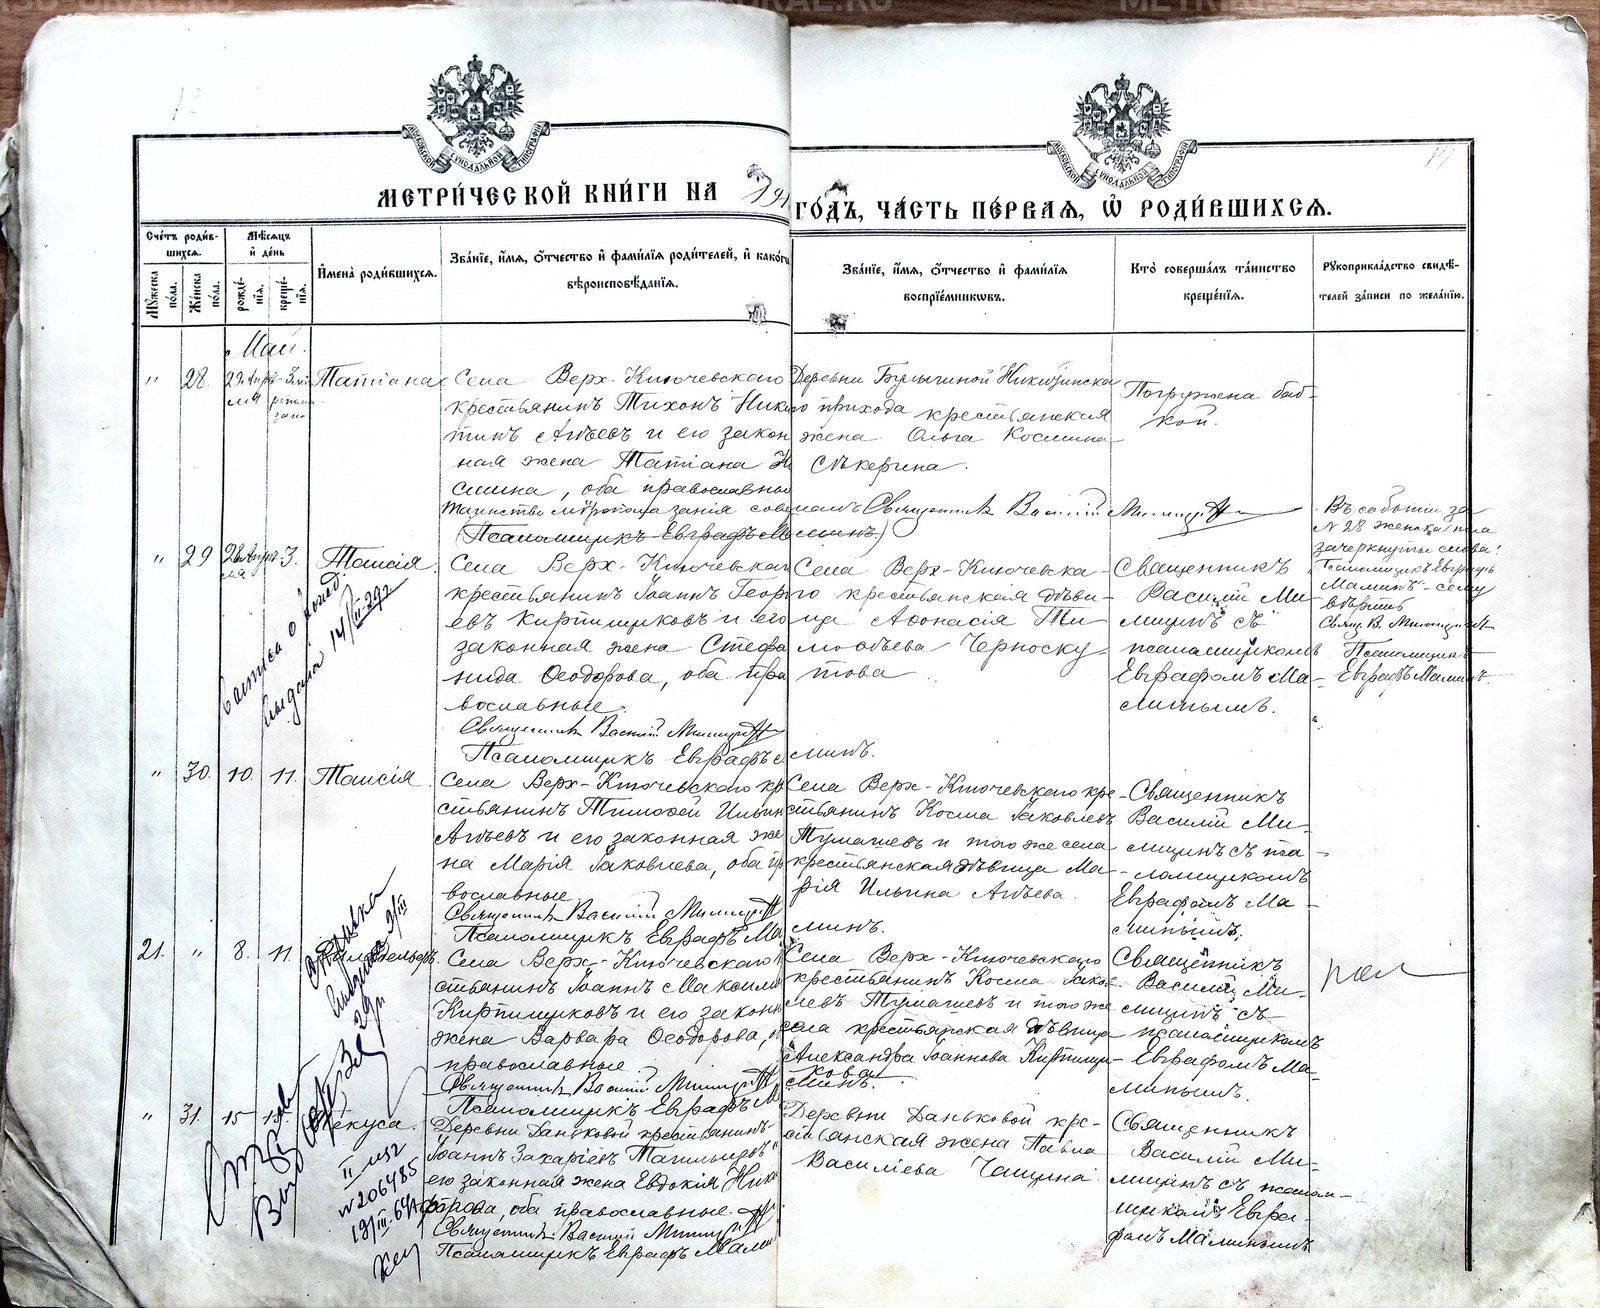 МЕТРИЧЕСКОЙ КНИГИ НА 191
ГОДЪ, ЧАСТЬ ПЕРВАЯ, Ѡ РОДИВШИХСЯ.
Счетъ родив-
шихся.
Мужеска пола.
Женска пола.
Мѣсяцъ
и день
рожде-
нія.
креще-
нія.
Имена родившихся.
Званіе, имя, отчество и фамилія родителей, и каког
вѣроисповѣданія.
Званіе, имя, отчество и фамилія
воспріемниковъ.
Кто совершалъ таинство
крещенія.
Рукоприкладство свидѣ-
телей записи по желанію.
Май.
" 28. Татіана
Села Верх-Ключевскаго
крестьянинъ Тихонъ Ники
тинъ Авѣевъ и его закон
ная жена Татіана
, оба православные
Таинство
(Псаломщикъ Евграфъ М
Деревни Никитинска
го прихода крестьянская
жена Ольга Космина
Сѣкерина.
Священникъ Василій
минъ)
Погружена баб-
кой.
Въ событіи за
№ 28 женска пола
зачеркнуты слова:
Псаломщикъ Евграфъ
Маминъ - сему
вѣрить
Свящ. В.
Псаломщикъ
Евграфъ Маминъ.
" 29 3. Таисія.
Села Верх-Ключевскаг
крестьянинъ Іоаннъ Георгі
евъ Кирпищиковъ и его
законная жена Стефа
нида Ѳеодорова, оба пра
вославные.
Священникъ Василій
Псаломщикъ Евграфъ
Села Верх-Ключевска-
го крестьянская дѣви-
ца Аѳонасія Ти-
моѳѣева Черноску-
това
минъ.
Священникъ
Василій Ми-
лицинъ съ
псаломщикомъ
Евграфомъ Ма-
минымъ.
выдана 14/III-29г
" 30. 10. 11. Таисія.
Села Верх-Ключевскаго кр
стьянинъ Тимоѳей Ильин
Авѣевъ и его законная же
на Марія Іаковлева, оба пр
вославные
Священникъ Василій
Псаломщикъ Евграфъ Ма
Села Верх-Ключевскаго кре-
стьянинъ Косма Іаковлевъ
Тумашевъ и того же села
крестьянская дѣвица Ма-
рія Ильина Авѣева.
минъ.
Священникъ
Василій Ми-
лицинъ съ пса-
ломщикомъ
Евграфомъ Ма-
минымъ.
21. " 8. 11.
Села Верх-Ключевскаго
стьянинъ Іоаннъ Максимо
Кирпищиковъ и его закон
жена Варвара Ѳеодорова,
православные.
Священникъ Василій
Псаломщикъ Евграфъ М
Села Верх-Ключевскаго
крестьянинъ Косма Іаков-
левъ Тумашевъ и того же
села крестьянская дѣвица
Александра Іоаннова Кирпищи-
кова
минъ.
Священникъ
Василій Ми-
лицинъ съ
псаломщикомъ
Евграфомъ Ма-
минымъ.
" 31. 15
Деревни Даньковой крестьянинъ
Іоаннъ Захаріевъ
его законная жена Евдокія Ники
форова, оба православные.
Священникъ Василій
Псаломщикъ Евграфъ Мами
Деревни Даньковой кре-
стьянская жена Павла
Василіева Чащина
Священникъ
Василій Ми-
лицинъ съ псалом-
щикомъ Евгра-
фомъ Маминымъ
№206485
19/III-69